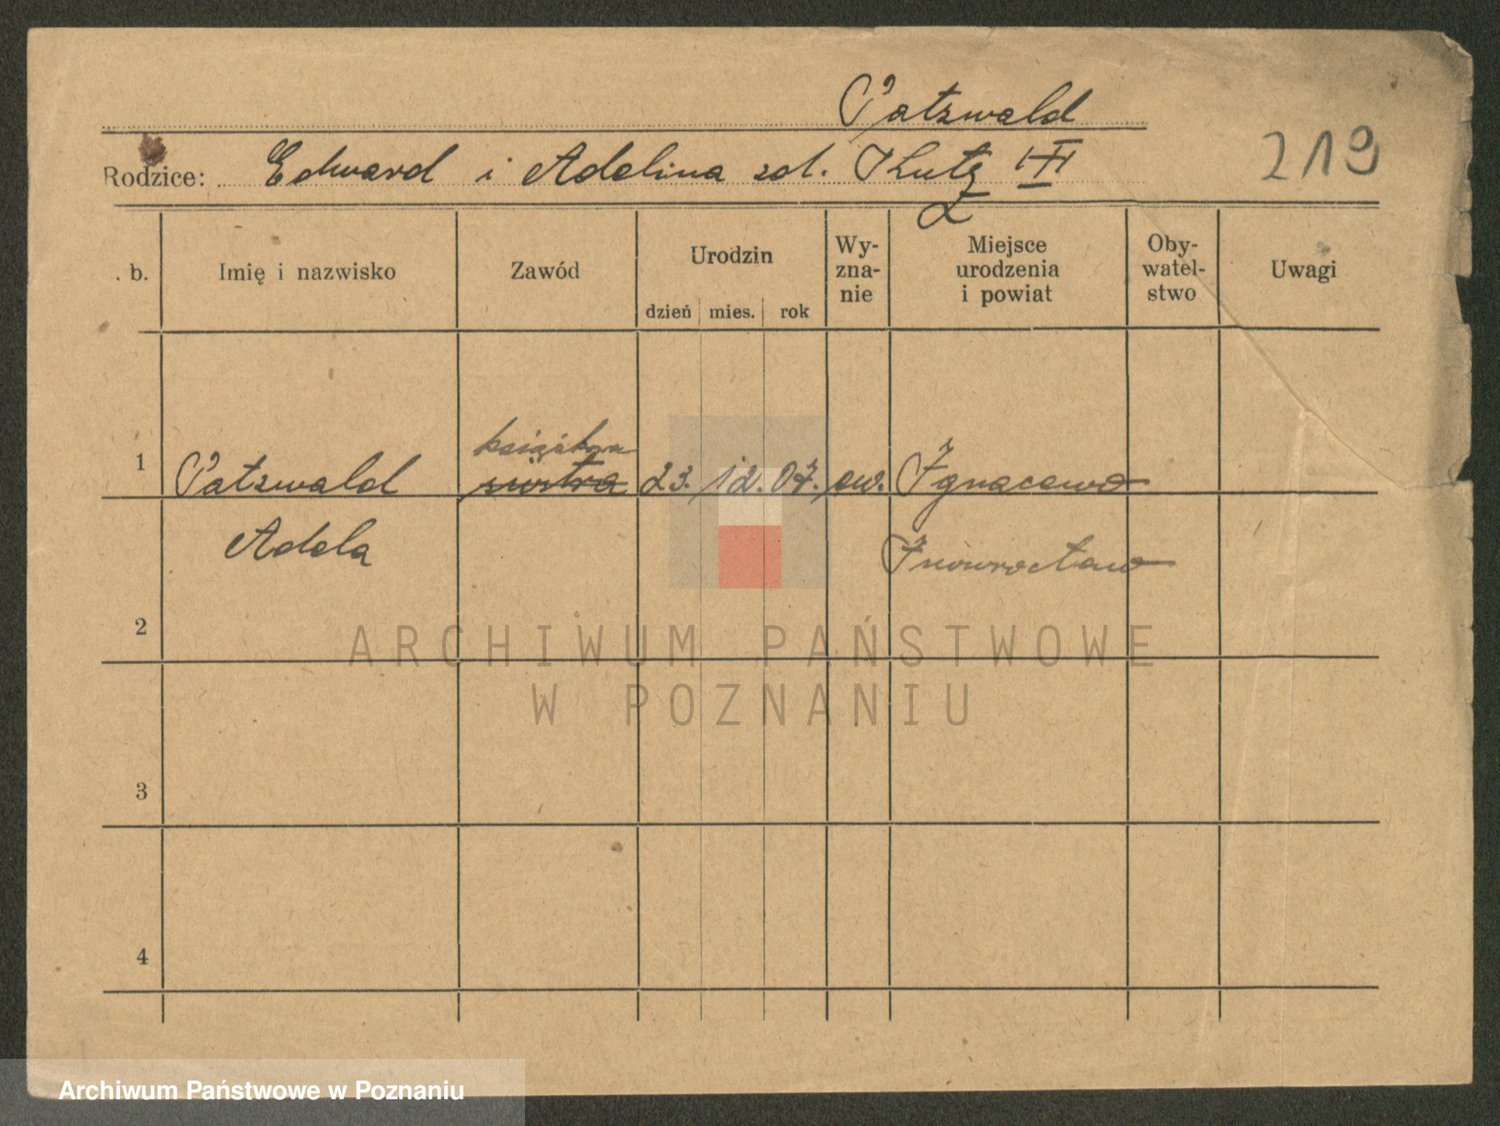 Patzwald
Rodzice: Edward i Adelina zd. Kutz I-II
219
. b. Imię i nazwisko Zawód Urodzin dzień mies. rok Wy-zna-nie Miejsce urodzenia i powiat Oby-watel-stwo Uwagi
książkowa
1 Patzwald siostra 23. 12. 07. ew. Ignacewo
Adela Inowrocław
2
3
4
ARCHIWUM PAŃSTWOWE
W POZNANIU
Archiwum Państwowe w Poznaniu